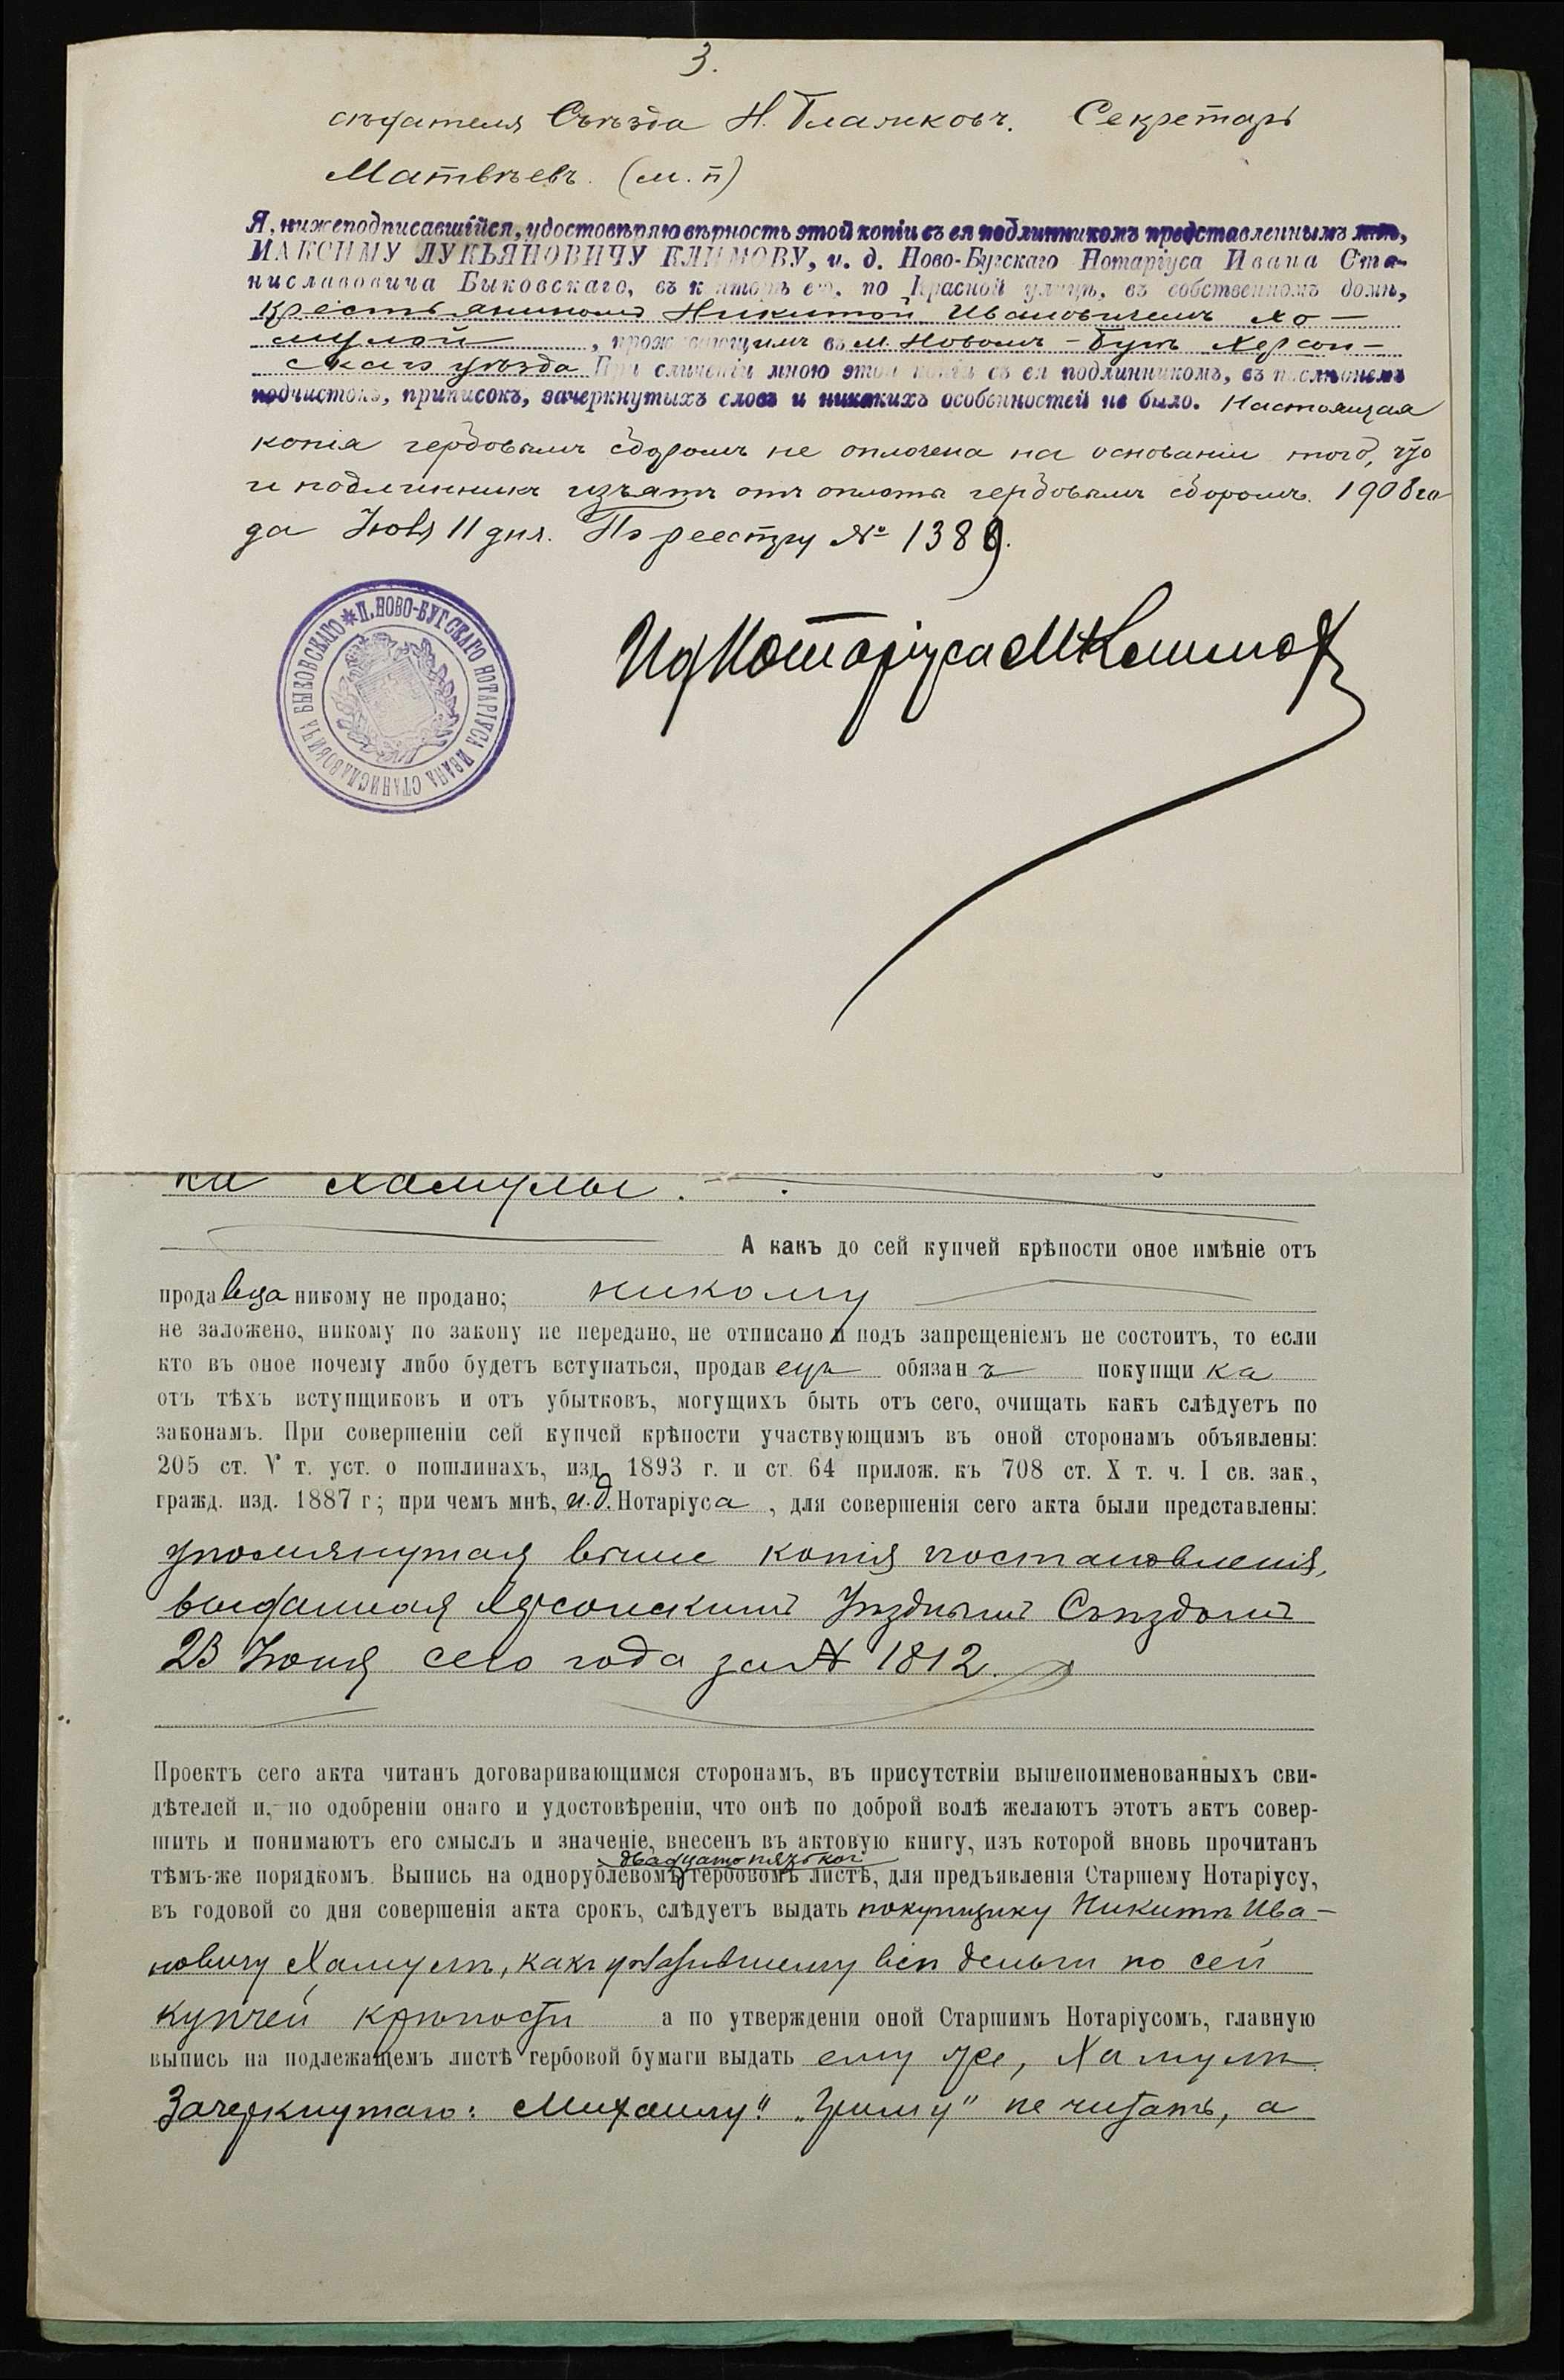 3.
сѣдателя Съѣзда Н. Глажковъ. Секретарь
Матвѣевъ. (м. п)
Я, нижеподписавшійся, удостовѣряю вѣрность этой копіи съ ея подлинникомъ представленнымъ мнѣ,
МАКСИМУ ЛУКЬЯНОВИЧУ КЛИМОВУ, и. д. Ново-Бугскаго Нотаріуса Ивана Ста-
ниславовича Быковскаго, въ конторѣ его, по Красной улицѣ, въ собственномъ домѣ,
крестьяниномъ Никитой Ивановичемъ Хо-
мулой, проживающимъ въ м. Новомъ-Бугѣ Херсон-
скаго уѣзда При сличеніи мною этой копіи съ ея подлинникомъ, въ послѣднемъ
подчистокъ, приписокъ, зачеркнутыхъ словъ и никакихъ особенностей не было. Настоящая
копія гербовымъ сборомъ не оплочена на основаніи того, что
и подлинникъ изъятъ отъ оплоты гербовымъ сборомъ. 1908 го
да Іюля 11 дня. По реестру № 1389.
И д Нотаріуса М Климов
* И. Д. НОВО-БУГСКАГО НОТАРІУСА ИВАНА СТАНИСЛАВОВИЧА БЫКОВСКАГО
ка Хамулы.
А какъ до сей купчей крѣпости оное имѣніе отъ
продавца никому не продано; никому
не заложено, никому по закону не передано, не отписано и подъ запрещеніемъ не состоитъ, то если
кто въ оное почему либо будетъ вступаться, продавецъ обязанъ покупщика
отъ тѣхъ вступщиковъ и отъ убытковъ, могущихъ быть отъ сего, очищать какъ слѣдуетъ по
законамъ. При совершеніи сей купчей крѣпости участвующимъ въ оной сторонамъ объявлены:
205 ст. V т. уст. о пошлинахъ, изд. 1893 г. и ст. 64 прилож. къ 708 ст. X т. ч. I св. зак.,
гражд. изд. 1887 г; при чемъ мнѣ, и.д. Нотаріуса, для совершенія сего акта были представлены:
упомянутая выше копія постановленія,
выданная Херсонскимъ Уѣзднымъ Съѣздомъ
23 Іюня сего года за № 1812.
Проектъ сего акта читанъ договаривающимся сторонамъ, въ присутствіи вышепоименованныхъ сви-
дѣтелей и, по одобреніи онаго и удостовѣреніи, что онѣ по доброй волѣ желаютъ этотъ актъ совер-
шить и понимаютъ его смыслъ и значеніе, внесенъ въ актовую книгу, изъ которой вновь прочитанъ
двадцатопятикоп
тѣмъ-же порядкомъ. Выпись на однорублевомъ гербовомъ листѣ, для предъявленія Старшему Нотаріусу,
въ годовой со дня совершенія акта срокъ, слѣдуетъ выдать покупщику Никитѣ Ива-
новичу Хамулѣ, какъ уплатившему всѣ деньги по сей
купчей крѣпости а по утвержденіи оной Старшимъ Нотаріусомъ, главную
выпись на подлежащемъ листѣ гербовой бумаги выдать ему же, Хамулѣ.
Зачеркнутаго: Михаилу" не читать, а